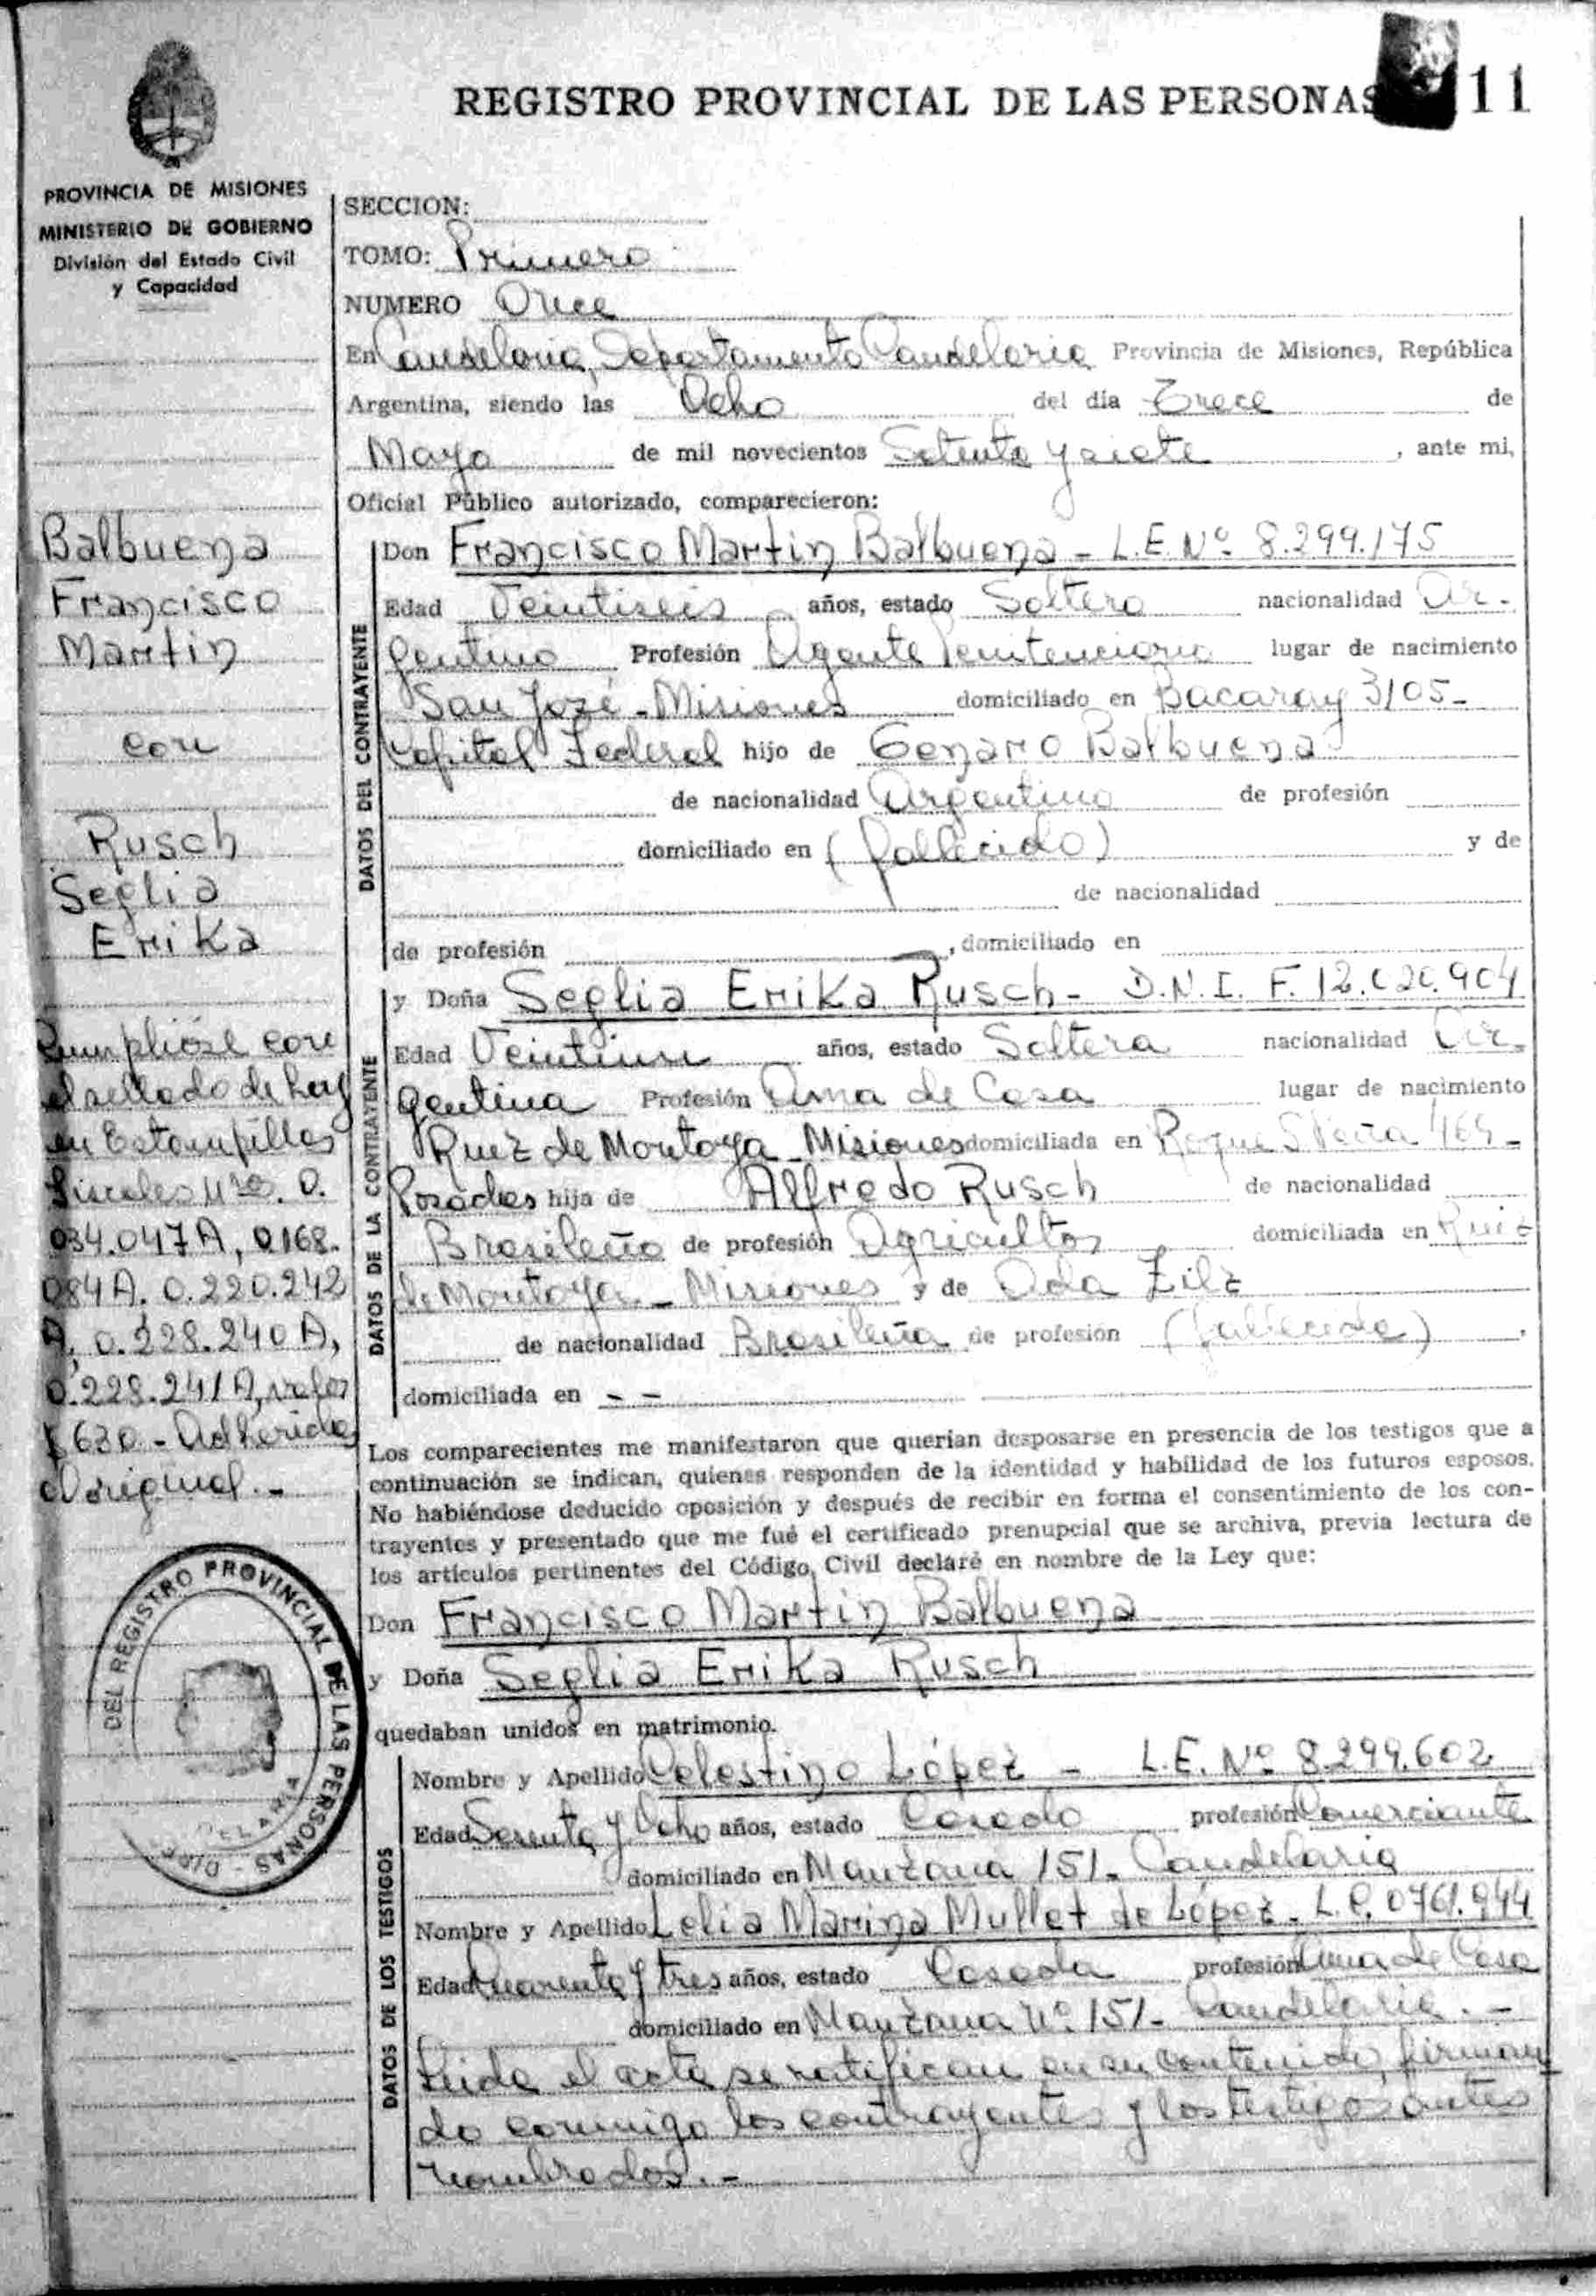 REGISTRO PROVINCIAL DE LAS PERSONAS 11
PROVINCIA DE MISIONES
MINISTERIO DE GOBIERNO
División del Estado Civil
y Capacidad
Balbuena
Francisco
Martin
con
Rusch
Seglia
Erika
Cumplióse con
el sellado de Ley
en Estampillas
Fiscales Nro. 0.
034.047A, 0.168.
084A. 0.220.242
A, 0.228.240A,
0.228.241A, valor
$630 - Adheridas
al original.-
DEL REGISTRO PROVINCIAL DE LAS PERSONAS
SECCION:
TOMO: Primero
NUMERO Once
En Candelaria, Departamento Candelaria Provincia de Misiones, República
Argentina, siendo las Ocho del día Trece de
Mayo de mil novecientos Setenta y siete, ante mi,
Oficial Público autorizado, comparecieron:
DATOS DEL CONTRAYENTE
Don Francisco Martin Balbuena - L.E. Nº 8.299.175
Edad Veintiseis años, estado Soltero nacionalidad Ar-
gentino Profesión Agente Penitenciario lugar de nacimiento
San José - Misiones domiciliado en Bacaray 3105-
Capital Federal hijo de Genaro Balbuena
de nacionalidad Argentino de profesión
domiciliado en (fallecido) y de
de nacionalidad
de profesión , domiciliado en
DATOS DE LA CONTRAYENTE
y Doña Seglia Erika Rusch - D.N.I. F. 12.020.904
Edad Veintiun años, estado Soltera nacionalidad Ar-
gentina Profesión Ama de Casa lugar de nacimiento
Ruiz de Montoya - Misiones domiciliada en Roque S Peña 464-
Posadas hija de Alfredo Rusch de nacionalidad
Brasileño de profesión Agricultor domiciliada en Ruiz
de Montoya - Misiones y de Ada Zilz
de nacionalidad Brasileña de profesión (fallecida)
domiciliada en - -
Los comparecientes me manifestaron que querían desposarse en presencia de los testigos que a
continuación se indican, quienes responden de la identidad y habilidad de los futuros esposos.
No habiéndose deducido oposición y después de recibir en forma el consentimiento de los con-
trayentes y presentado que me fué el certificado prenupcial que se archiva, previa lectura de
los artículos pertinentes del Código Civil declaré en nombre de la Ley que:
Don Francisco Martin Balbuena
y Doña Seglia Erika Rusch
quedaban unidos en matrimonio.
DATOS DE LOS TESTIGOS
Nombre y Apellido Celestino López - L.E. Nº 8.299.602
Edad Sesenta y Ocho años, estado Casado profesión Comerciante
domiciliado en Manzana 151- Candelaria
Nombre y Apellido Lelia Marina Mullet de López - L.C. 0761.944
Edad Cuarenta y tres años, estado Casada profesión Ama de Casa
domiciliado en Manzana Nº 151- Candelaria.-
Leida el acta se ratifican en su contenido, firman
do conmigo los contrayentes y los testigos antes
nombrados.-